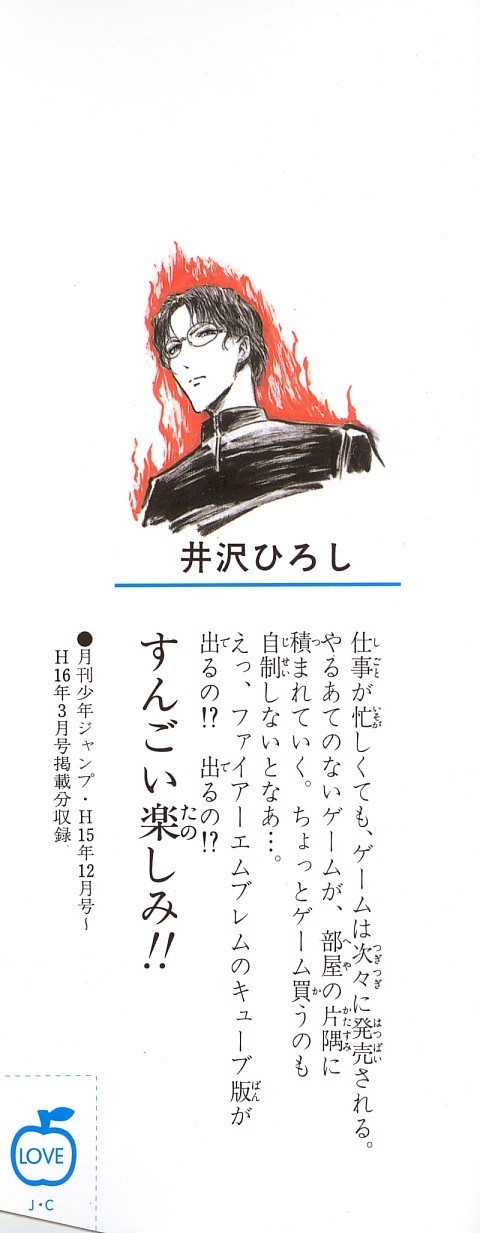 井沢ひろし
仕事が忙しくても、ゲームは次々に発売される。
やるあてのないゲームが、部屋の片隅に
積まれていく。ちょっとゲーム買うのも
自制しないとなあ…。
えっ、ファイアーエムブレムのキューブ版が
出るの!? 出るの!?
すんごい楽しみ!!
●月刊少年ジャンプ・H15年12月号~
H16年3月号掲載分収録
LOVE
J・C